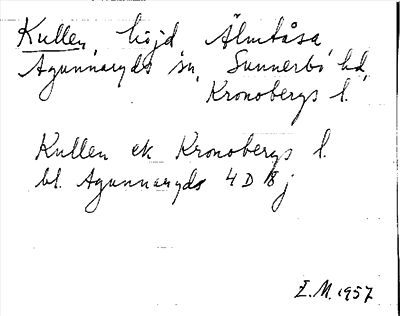 Kullen, höjd, Älmtåsa,
Agunnaryds sn, Sunnerbo hd,
Kronobergs l.
Kullen ek Kronobergs l.
bl. Agunnaryds 4 D 8 j
E.M. 1957